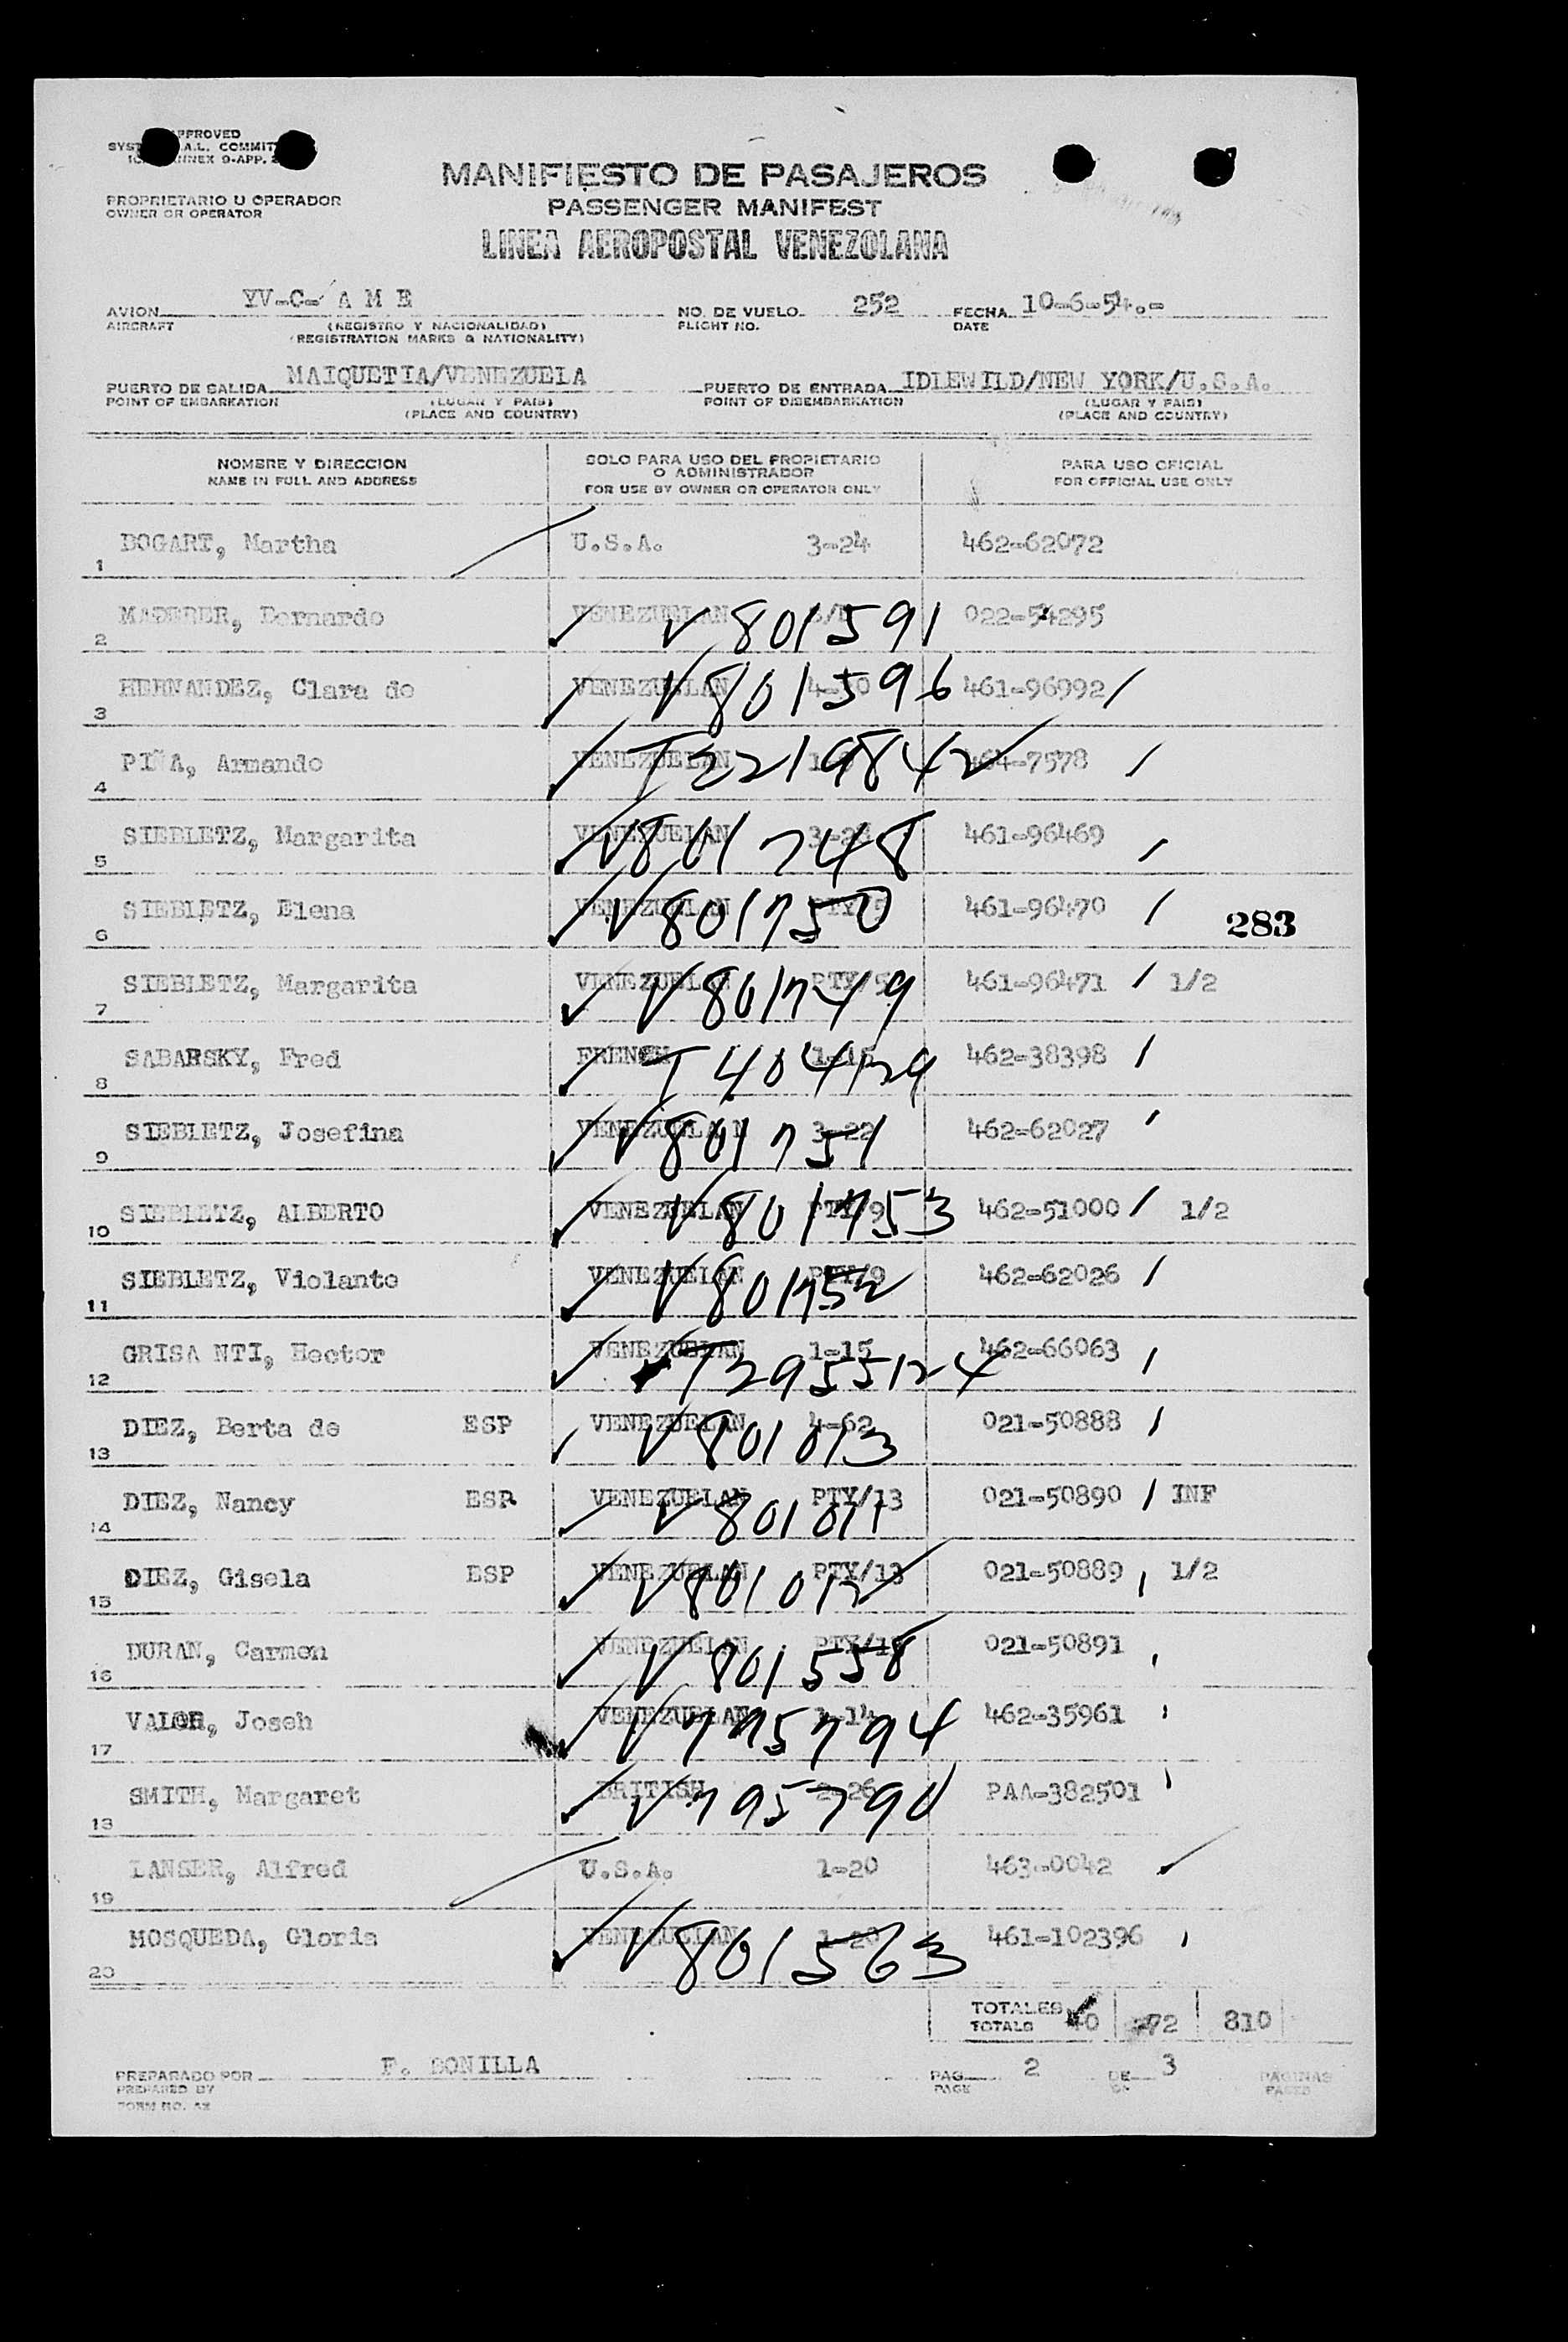 APPROVED
COMMIT
ANNEX 9-APP.
MANIFIESTO DE PASAJEROS
PROPRIETARIO U OPERADOR
OWNER OR OPERATOR
PASSENGER MANIFEST
LINEA AEROPOSTAL VENEZOLANA
AVION YV-C- A M E NO. DE VUELO 252 FECHA 10-6-54.-
AIRCRAFT (REGISTRO Y NACIONALIDAD) FLIGHT NO. DATE
(REGISTRATION MARKS & NATIONALITY)
PUERTO DE SALIDA MAIQUETIA/VENEZUELA PUERTO DE ENTRADA IDLEWILD/NEW YORK/U.S.A.
POINT OF EMBARKATION (LUGAR Y PAIS) POINT OF DISEMBARKATION (LUGAR Y PAIS)
(PLACE AND COUNTRY) (PLACE AND COUNTRY)
NOMBRE Y DIRECCION SOLO PARA USO DEL PROPIETARIO PARA USO OFICIAL
O ADMINISTRADOR
NAME IN FULL AND ADDRESS FOR USE BY OWNER OR OPERATOR ONLY FOR OFFICIAL USE ONLY
1 BOGART, Martha U.S.A. 3-24 462-62072
2 Bernardo VENEZUELAN V801591 022-54295
3 HERNANDEZ, Clara de VENEZUELAN V801596 461-96992
4 PIÑA, Armando VENEZUELAN T2219842 464-7578
5 SIEBLETZ, Margarita VENEZUELAN V801748 461-96469
6 SIEBLETZ, Elena VENEZUELAN PTY/5 V801750 461-96470
283
7 SIEBLETZ, Margarita VENEZUELAN PTY/5 V801749 461-96471 1/2
8 SABARSKY, Fred FRENCH 1-15 T404129 462-38398
9 SIEBLETZ, Josefina VENEZUELAN 3-22 V801751 462-62027
10 SIEBLETZ, ALBERTO VENEZUELAN PTY/9 V801753 462-51000 1/2
11 SIEBLETZ, Violante VENEZUELAN PTY/9 V801752 462-62026
12 GRISA NTI, Hector VENEZUELAN 1-15 T2955124 462-66063
13 DIEZ, Berta de ESP VENEZUELAN 4-62 V801013 021-50888
14 DIEZ, Nancy ESP VENEZUELAN PTY/13 V801011 021-50890 INF
15 DIEZ, Gisela ESP VENEZUELAN PTY/13 V801012 021-50889 1/2
16 DURAN, Carmen VENEZUELAN V801558 021-50891
17 Joseh VENEZUELAN 1-14 V795794 462-35961
18 SMITH, Margaret BRITISH 2-26 V795790 PAA-382501
19 LANSER, Alfred U.S.A. 1-20 463-0042
20 MOSQUEDA, Gloria VENEZUELAN 1-20 V801563 461-102396
TOTALES
TOTALS 40 772 810
PREPARADO POR F. BONILLA PAG. 2 DE 3 PAGINAS
PREPARED BY PAGE OF PAGES
FORM NO.